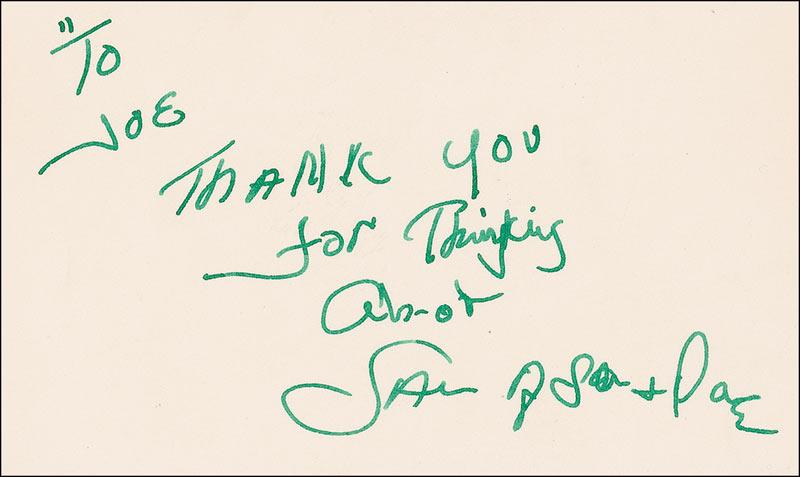 "To
JOE
THANK YOU
for Thinking
About
SAM of SAM + Dave